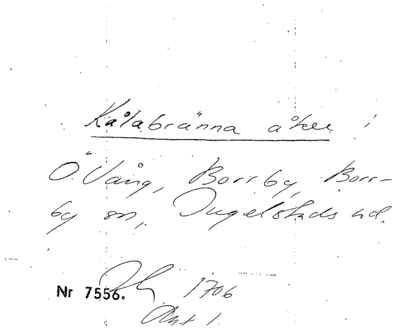 Kålabränna åker i
Ö. Vång, Borrby, Borr-
by sn, Ingelstads hd.
1706
Nr 7556.
Akt 1.